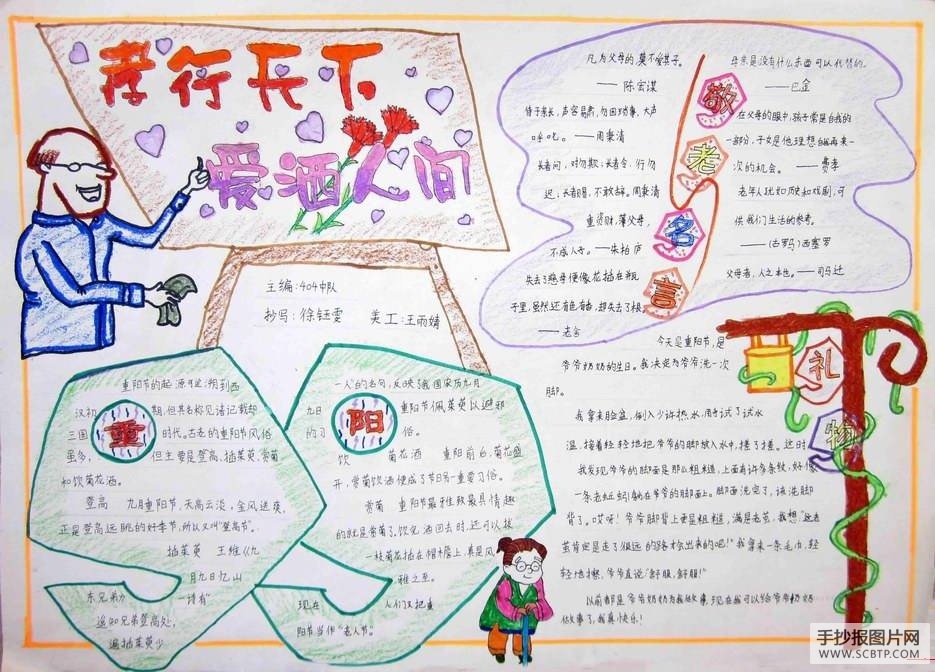 孝行天下
爱洒人间
主编:404中队
抄写:徐钰雯 美工:王雨婧
敬老名言
凡为父母的,莫不爱其子。
——陈宏谋
侍于亲长,声容易肃,勿因琐事,大声
呼叱。——周秉清
长者问,对勿欺;长者令,行勿
迟;长者赐,不敢辞。周秉清
重资财,薄父母,
不成人子。——朱柏庐
失去了慈母便像花插在瓶
子里,虽然还有色有香,却失去了根
——老舍
母亲是没有什么东西可以代替的。
——巴金
在父母的眼中,孩子常是自我的
一部分,子女是他理想自我再来一
次的机会。——费孝
老年人犹如历史和戏剧,可
供我们生活的参考。
——(古罗马)西塞罗
父母者,人之本也。——司马迁
重
重阳节的起源,可追溯到西
汉初期,但其名称见诸记载却
三国时代。古老的重阳节风俗
虽多,但主要是登高,插茱萸,赏菊
和饮菊花酒。
登高 九月重阳节,天高云淡,金风送爽,
正是登高远眺的好季节,所以又叫“登高节”。
插茱萸 王维《九
月九日忆山
东兄弟》一诗有“
遥知兄弟登高处,
遍插茱萸少
阳
一人”的名句,反映了我国农历九月
九日重阳节佩茱萸以避邪
的习俗。
饮菊花酒 重阳前后,菊花盛
开,赏菊饮酒便成了节日另一重要习俗。
赏菊 重阳节最雅致最具情趣
的就是赏菊了,饮完酒回去时,还可以拔
一枝菊花插在帽木詹上,真是风
雅之至。
现在人们又把重
阳节当作“老人节”。
礼物
今天是重阳节,是
爷爷奶奶的生日。我决定为爷爷洗一次
脚。
我拿来脸盆,倒入少许热水,用手试了试水
温,接着轻轻地把爷爷的脚放入水中,搓了搓。这时
我发现爷爷的脚面是那么粗糙,上面有许多条纹,好像
一条老蚯蚓躺在爷爷的脚面上。脚面洗完了,该洗脚
背了。哎呀!爷爷脚背上更是粗糙,满是老茧,我想“这老
茧肯定是走了很远的路才会出来的吧!”我拿来一条毛巾,轻
轻地擦,爷爷直说“舒服,舒服!”
以前都是爷爷奶奶为我做事,现在我可以给爷爷奶奶
做事了,我真快乐!
手抄报图片网
WWW.SCBTP.COM